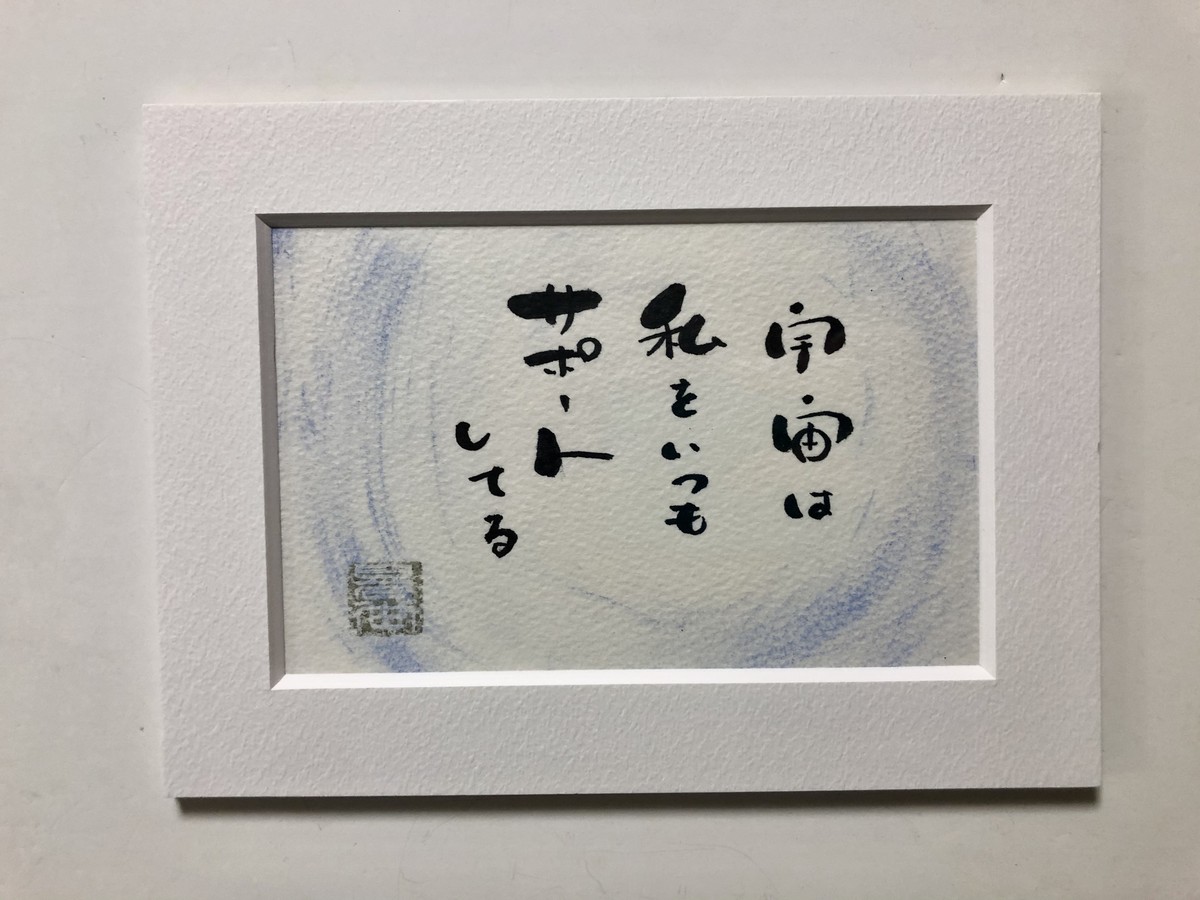 宇宙は
私をいつも
サポート
してる